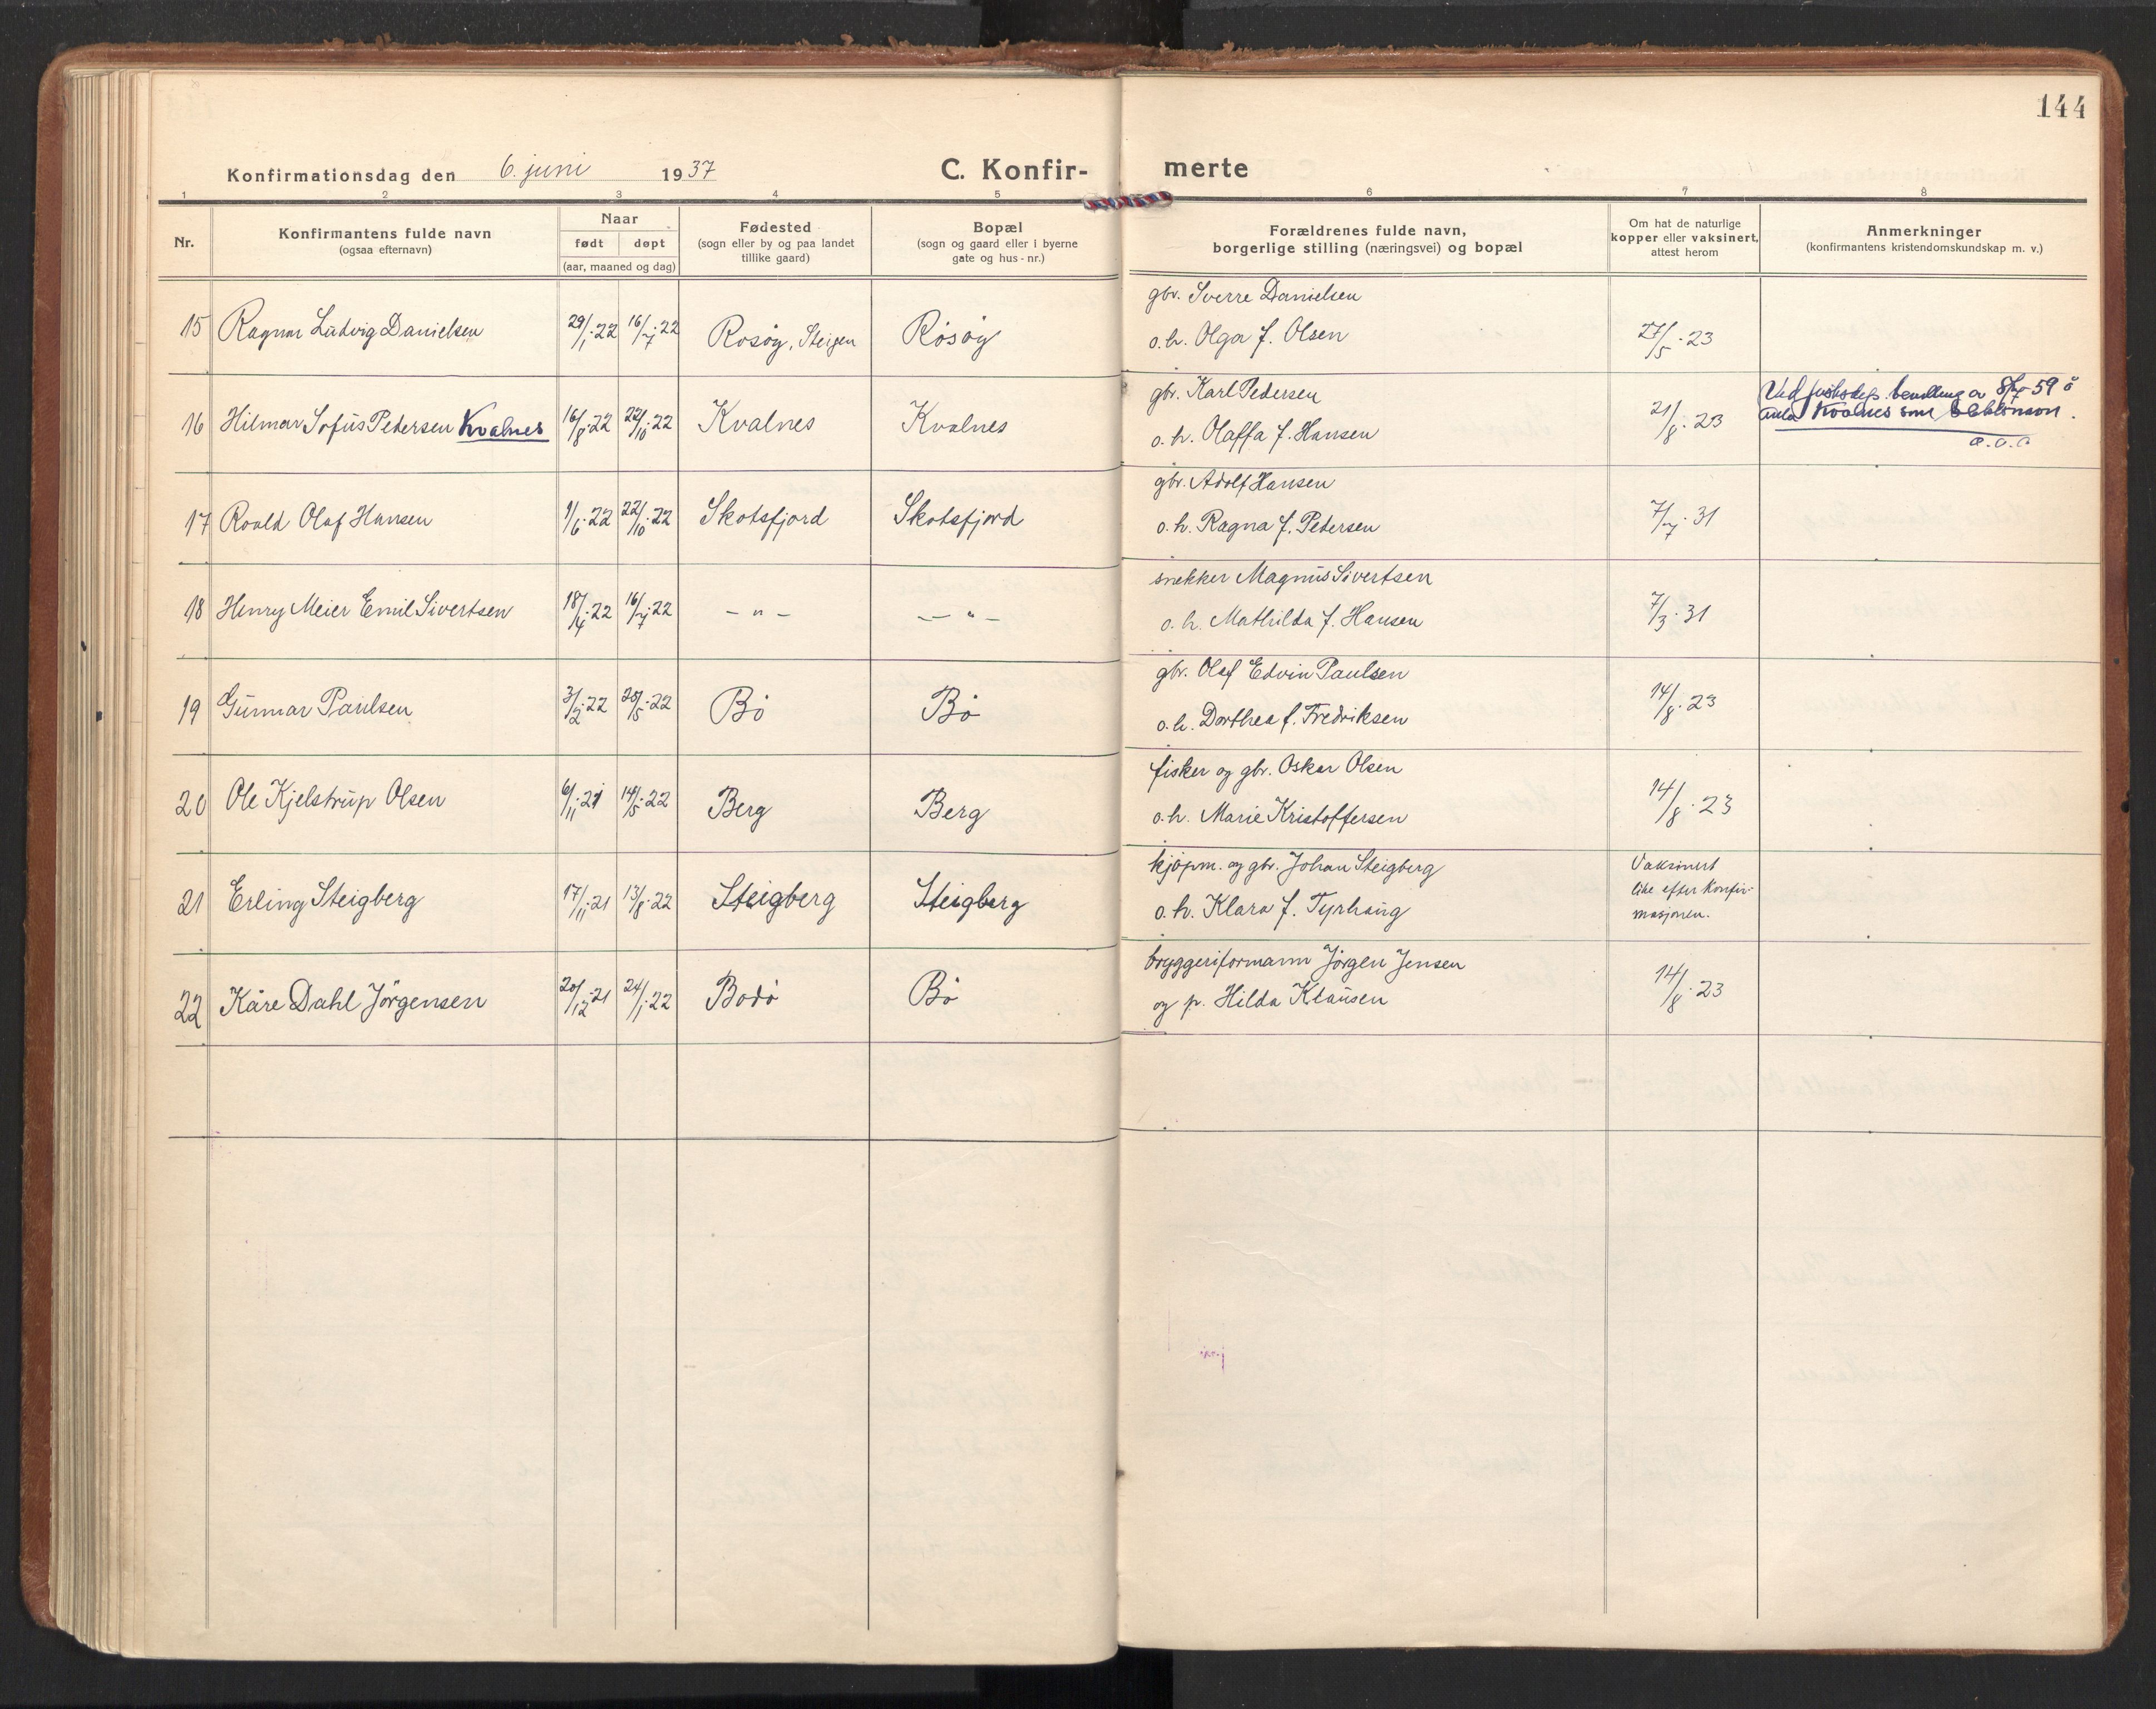 144
Konfirmationsdag den 6. juni 1937
C. Konfirmerte
1 2 3 4 5 6 7 8
Nr.
Konfirmantens fulde navn
(ogsaa efternavn)
Naar
født døpt
(aar, maaned og dag)
Fødested
(sogn eller by og paa landet
tillike gaard)
Bopæl
(sogn og gaard eller i byerne
gate og hus-nr.)
Forældrenes fulde navn,
borgerlige stilling (næringsvei) og bopæl
Om hat de naturlige
kopper eller vaksinert,
attest herom
Anmerkninger
(konfirmantens kristendomskundskap m. v.)
15 Ragnar Ludvig Danielsen 29/1-22 16/7-22 Rosøy, Steigen Røsøy
gbr. Sverre Danielsen
o. h. Olga f. Olsen
27/5-23
16 Hilmar Sofus Pedersen Kvalnes 16/8-22 22/10-22 Kvalnes Kvalnes
gbr. Karl Pedersen
o. h. Olaffa f. Hansen
21/8-23
Ved justisdep. bevilling av 8/7-59 å
anta Kvalnes som slektsnavn.
17 Roald Olaf Hansen 1/6-22 22/10-22 Skotsfjord Skotsfjord
gbr. Adolf Hansen
o. h. Ragna f. Petersen
7/7-31
18 Henry Meier Emil Sivertsen 18/4-22 16/7-22 - " - - " -
snekker Magnus Sivertsen
o. h. Mathilda f. Hansen
7/3-31
19 Gunnar Paulsen 3/2-22 28/5-22 Bø Bø
gbr. Olaf Edvin Paulsen
o. h. Dorthea f. Fredriksen
14/8-23
20 Ole Kjelstrup Olsen 6/11-21 14/5-22 Berg Berg
fisker og gbr. Oskar Olsen
o. h. Marie Kristoffersen
14/8-23
21 Erling Steigberg 17/11-21 13/8-22 Steigberg Steigberg
kjøpm. og gbr. Johan Steigberg
o. h. Klara f. Tyrhaug
Vaksinert
like efter konfir-
masjonen.
22 Kåre Dahl Jørgensen 20/12-21 24/1-22 Bodø Bø
bryggeriformann Jørgen Jensen
og p. Hilda Klausen
14/8-23